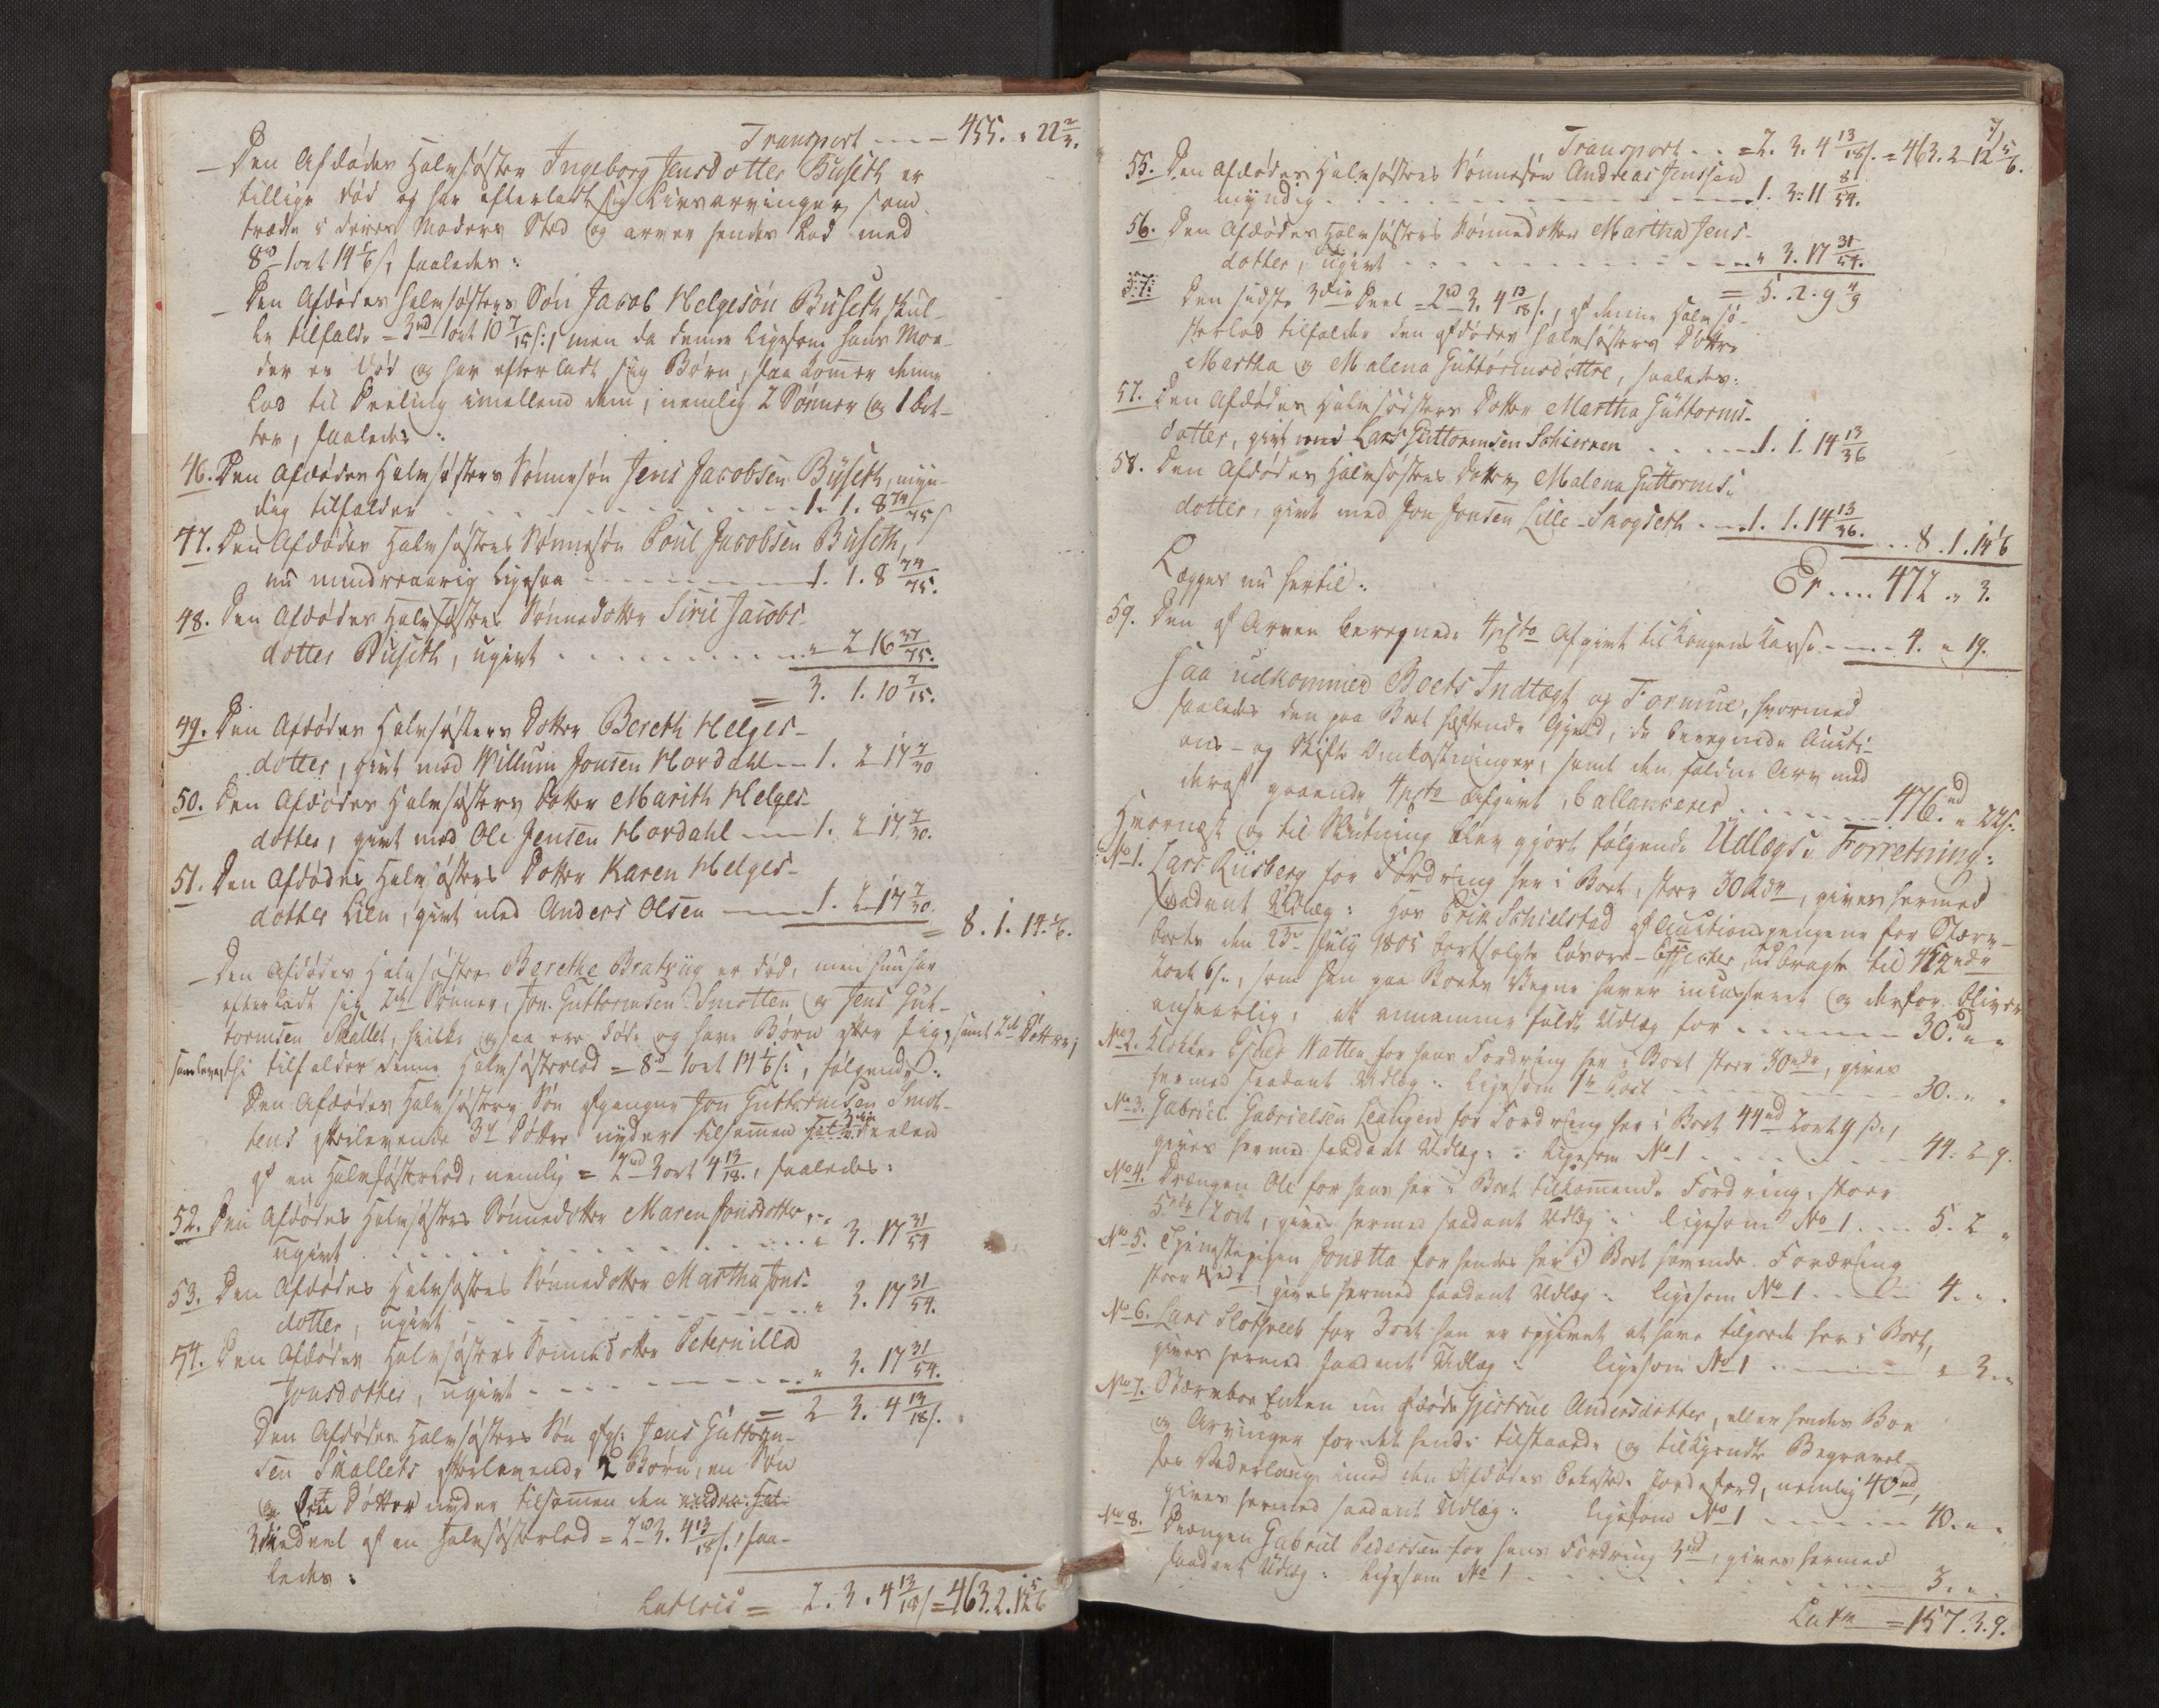 Transport - - - 455. " 22 2/3.
– Den Afdødes Halvsøster Ingeborg Jensdotter Buseth er
tillige død og har efterladt sig Livsarvinger, som
træde i deres Moders Sted og arver hendes Lod med
8rd 1 ort 14 1/6 s, saaledes:
– Den Afdødes Halvsøsters Søn Jacob Helgesøn Buseth skul-
le tilfalde = 3rd 1 ort 10 7/15 s: men da denne ligesom hans Mo-
der er død og har efterladt sig Børn, saa kommer denne
Lod til Deeling imellem dem, nemlig 2 Sønner og 1 Dot-
ter, saaledes:
46. Den Afdødes Halvsøsters Sønnesøn Jens Jacobsen Buseth, myn-
dig tilfalder - - - 1. 1. 8 74/75 s
47. Den Afdødes Halvsøsters Sønnesøn Poul Jacobsen Buseth,
nu mindreaarig ligesaa - - - 1. 1. 8 74/75.
48. Den Afdødes Halvsøsters Sønnedotter Sirie Jacobs-
dotter Buseth, ugivt - - - " 2 16 37/75.
= 3. 1. 10 7/15.
49. Den Afdødes Halvsøsters Dotter Bereth Helges-
dotter, givt med Willum Jonsen Hordahl - - 1. 2 17 7/30
50. Den Afdødes Halvsøsters Dotter Marith Helges-
dotter, givt med Ole Jensen Hordahl - - 1. 2 17 7/30.
51. Den Afdødes Halvsøsters Dotter Karen Helges-
dotter Lien, givt med Anders Olsen - - 1. 2 17 7/30.
= 8. 1. 14 1/6.
– Den Afdødes Halvsøster Berethe Bratsüg er død, men hun har
efterladt sig 2de Sønner, Jon Guttormsen Smotten og Jens Gut-
tormsen Skallet, hvilke ogsaa ere døde og have Børn efter sig, samt 2de Døttre,
tilfalder denne Halvsøsterlod = 8rd 1 ort 14 1/6 s:, følgende:
Den Afdødes Halvsøsters Søn Jon Guttormsen Smot-
tens efterlevende 3de Døttre nyder tilsammen 3die Deelen
af en Halvsøsterlod, nemlig = 2rd 3 ort 4 13/18., saaledes:
52. Den Afdødes Halvsøsters Sønnedotter Maren Jonsdotter,
ugivt - - - " 3. 17 31/54
53. Den Afdødes Halvsøsters Sønnedotter Martha Jons-
dotter, ugivt - - - " 3. 17 31/54.
54. Den Afdødes Halvsøsters Sønnedotter Peternilla
Jonsdotter, ugivt - - - " 3. 17 31/54.
= 2 3. 4 13/18 s.
Den Afdødes Halvsøsters Søn Jens Guttorm-
sen Skallets efterlevende 2 Børn, en Søn
og Dotter nyder tilsammen den
3die Deel af en Halvsøsterlod = 2rd 3. 4 13/18 s., saa-
ledes:
Lateris = 2. 3. 4 13/18 s = 463. 2. 12 5/6
7
Transport - - = 2. 3. 4 13/18 s. = 463. 2 12 5/6.
55. Den Afdødes Halvsøsters Sønnesøn Andreas Jenssen
myndig - - - 1. 3. 11 8/54.
56. Den Afdødes Halvsøsters Sønnedotter Martha Jens-
dotter, ugivt - - - " 3. 17 31/54.
= 5. 2. 9 4/9
57. Den sidste 3die Deel = 2rd 3. 4 13/18 s., af denne Halvsø-
sterlod tilfalder den afdødes Halvsøsters Døttre
Martha og Malena Guttormsdøttre, saaledes:
57. Den Afdødes Halvsøsters Dotter Martha Guttorms-
dotter, givt med Lars Guttormsen Schierven - - 1. 1. 14 13/36
58. Den Afdødes Halvsøsters Dotter Malena Guttorms-
dotter, givt med Jon Jonsen Lille-Skogseth - - 1. 1. 14 13/36. - - 8. 1. 14 1/6
Er - - - 472 " 3.
Lægges nu hertil:
59. Den af Arven beregnede 4 pCto Afgivt til Kongens Kasse - - - 4. " 19.
Saa udkommer Boets Indtægt og Formue, hvormed
saaledes den paa Boet heftende Gjeld, de beregnede Aucti-
ons- og Skifte Omkostninger, samt den faldne Arv med
deraf gaaende 4 pCto Afgivt, ballanceres - - - 476rd " 22 s.
Hvornæst og til Slutning blev gjort følgende Udlægs-Forretning:
No 1. Lars Riisberg for Fordring her i Boet, stor 30 Rdr, gives hermed
saadant Udlæg: Hos Erik Schielstad af Auctionspengene for Stærv-
boets den 23de July 1805 bortsolgte Løsøre-Effecter, udbragt til 472rdr
2 ort 6 s., som han paa Boets Vegne haver incasseret og derfor bliver
ansvarlig, at annamme fuldt Udlæg for - - - 30rd " "
No 2. Klokker Watten for hans Fordring her i Boet stor 30rdr, gives
hermed saadant Udlæg: ligesom 1te Post - - - 30. " "
No 3. Gabriel Gabrielsen Leangen for Fordring her i Boet 44rd 2 ort 9 s.,
gives hermed saadant Udlæg: ligesom No 1 - - - 44. 2 9.
No 4. Drengen Ole for hans her i Boet tilkommende Fordring, stor
5rdr 2 ort, gives hermed saadant Udlæg: ligesom No 1 - - 5. 2 "
No 5. Tjenestepigen Jonetta for hendes her i Boet havende Fordring
stor 4rdr, gives hermed saadant Udlæg: ligesom No 1 - - 4. " .
No 6. Lars for 3 ort han er opgivet at have tilgode her i Boet,
gives hermed saadant Udlæg: ligesom No 1 - - - " 3 "
No 7. Stærvboe Enken nu afdøde Gjertrue Andersdotter, eller hendes Boe
og Arvinger for det hende tilstaaede og tilkjendte Begravel-
ses Vederlag imod den Afdødes bekostede Jordefærd, nemlig 40rd,
gives hermed saadant Udlæg: ligesom No 1 - - - 40. " .
No 8. Drengen Gabriel Pedersen for hans Fordring 3rd, gives hermed
saadant Udlæg: ligesom No 1 - - - 3. " .
Latus = 157. 3. 9.